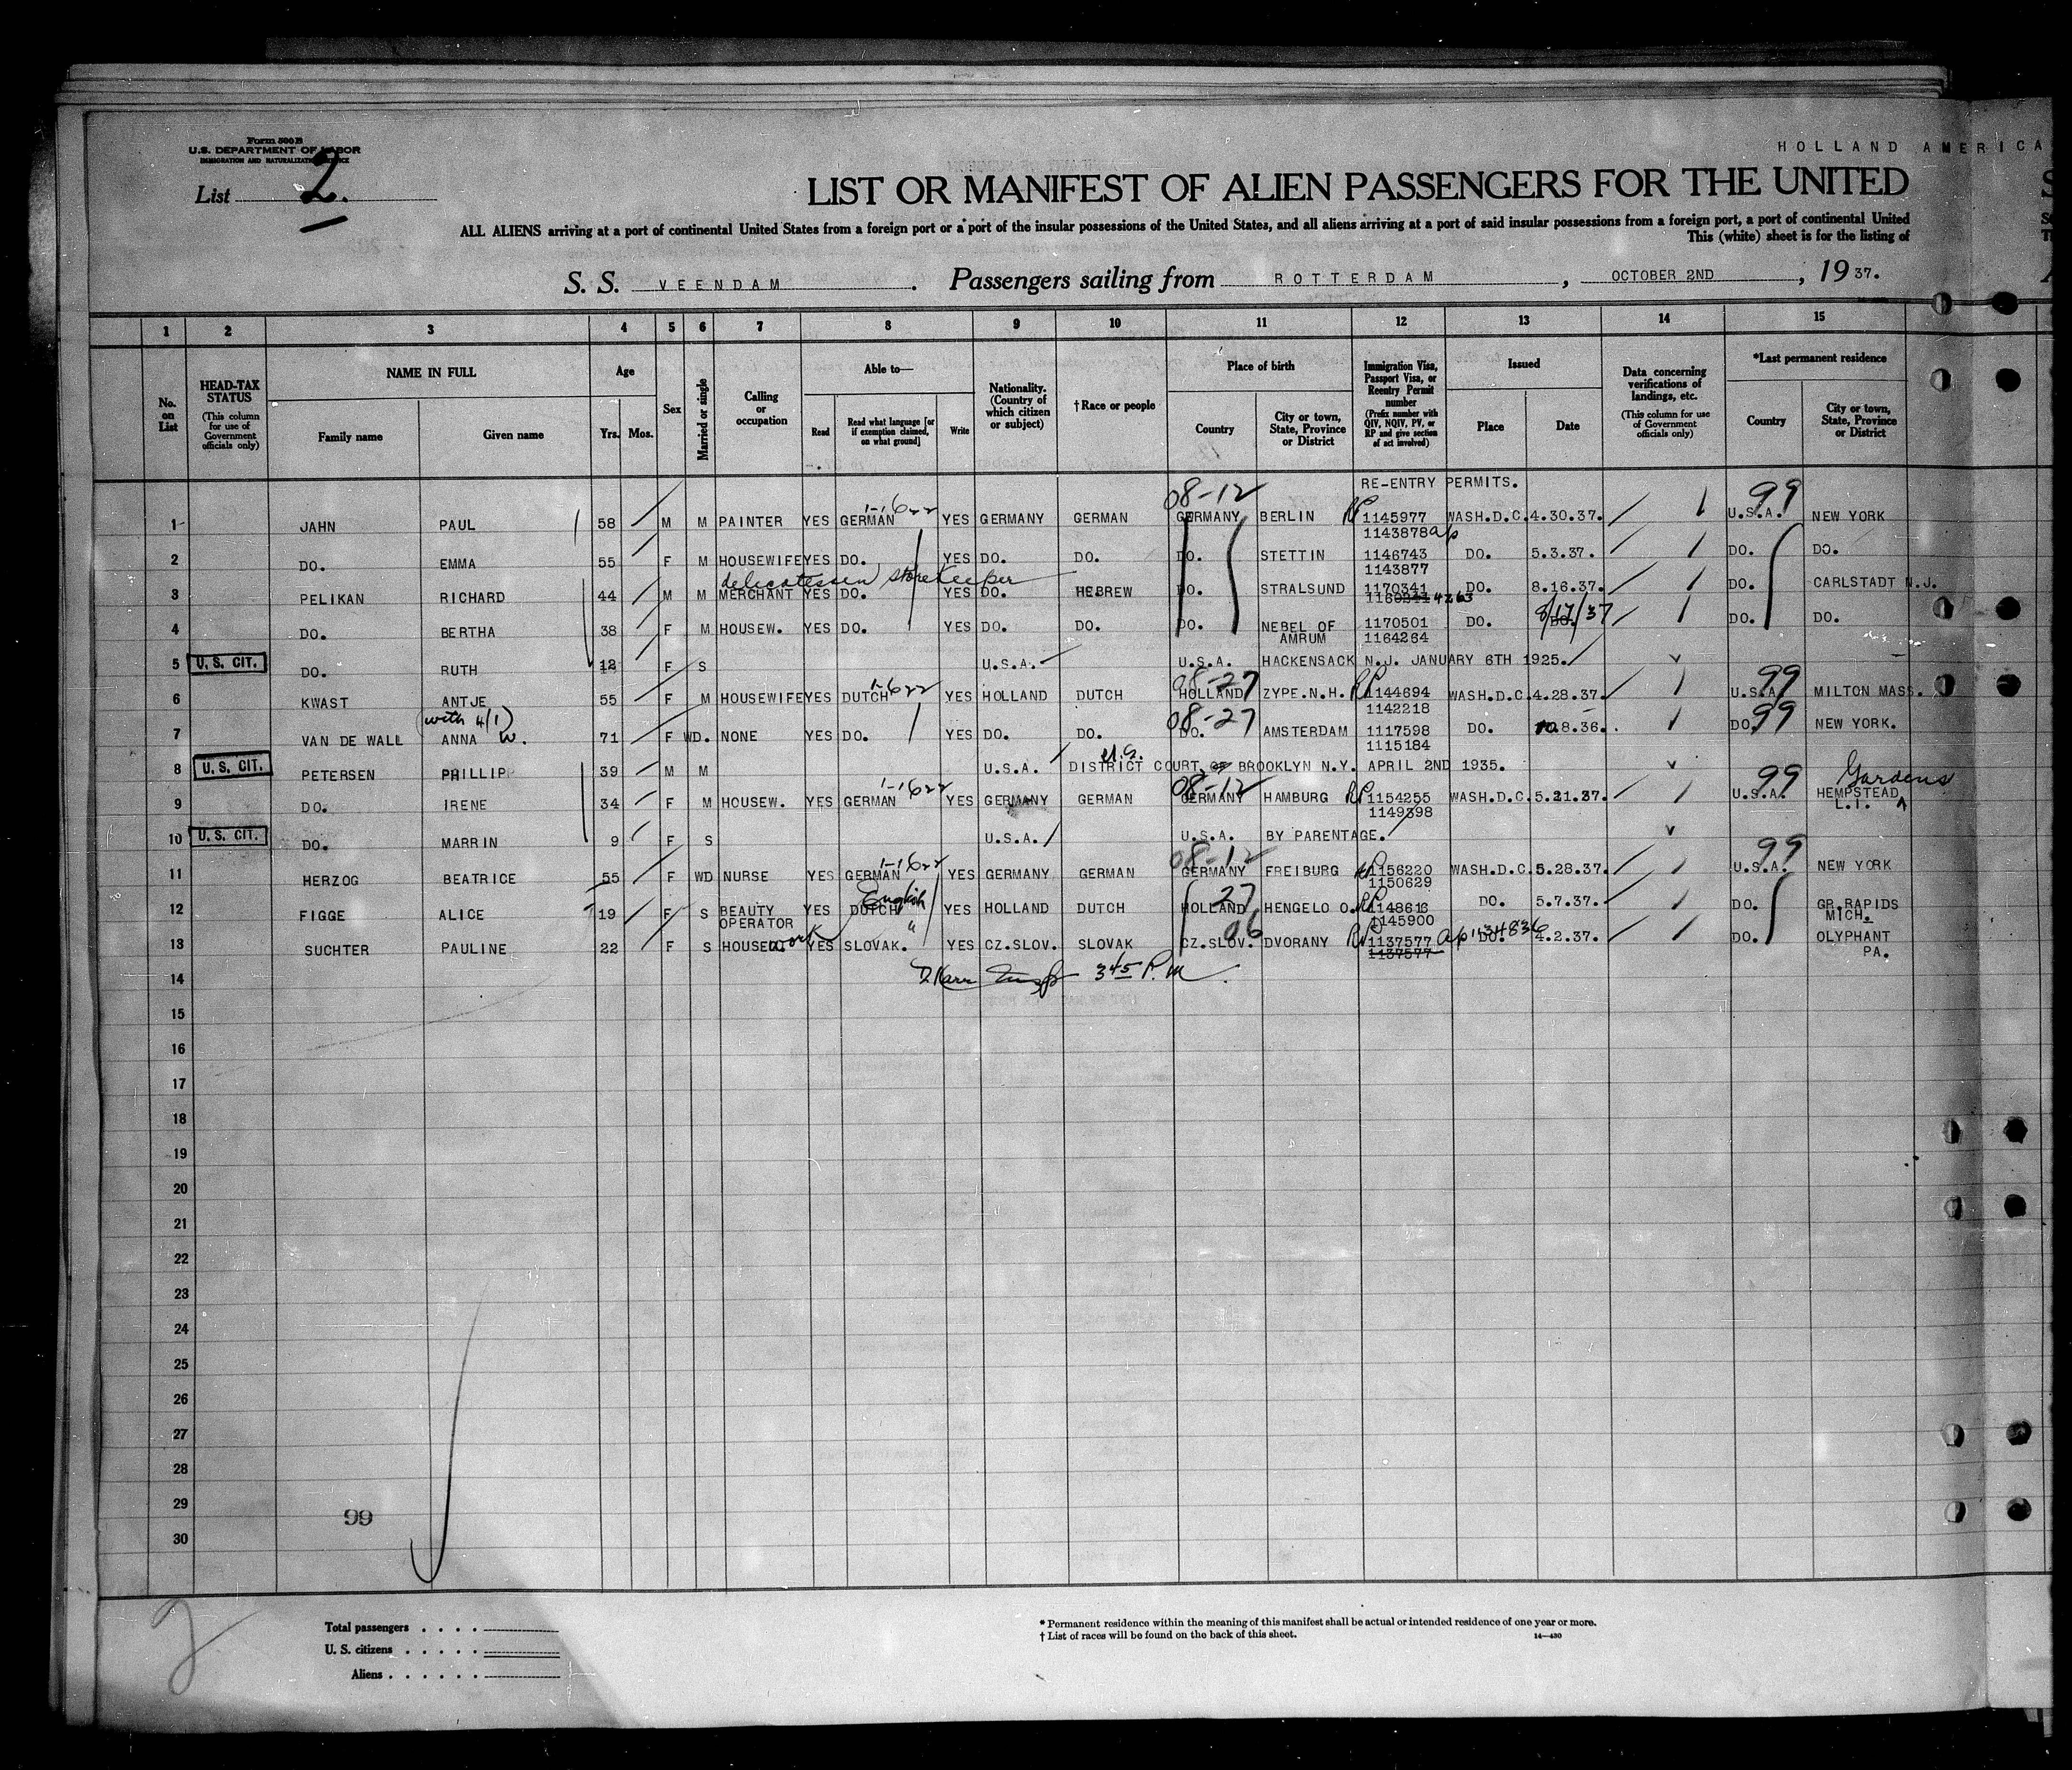 Form 500 B
U.S. DEPARTMENT OF LABOR
IMMIGRATION AND NATURALIZATION SERVICE
HOLLAND AMERICA
List 2.
LIST OR MANIFEST OF ALIEN PASSENGERS FOR THE UNITED
ALL ALIENS arriving at a port of continental United States from a foreign port or a port of the insular possessions of the United States, and all aliens arriving at a port of said insular possessions from a foreign port, a port of continental United
This (white) sheet is for the listing of
S. S. VEENDAM . Passengers sailing from ROTTERDAM , OCTOBER 2ND , 19 37.
1 2 3 4 5 6 7 8 9 10 11 12 13 14 15
No. on List
HEAD-TAX STATUS (This column for use of Government officials only)
NAME IN FULL
Family name Given name
Age
Yrs. Mos.
Sex
Married or single
Calling or occupation
Able to—
Read Read what language [or if exemption claimed, on what ground] Write
Nationality. (Country of which citizen or subject)
†Race or people
Place of birth
Country City or town, State, Province or District
Immigration Visa, Passport Visa, or Reentry Permit number (Prefix number with QIV, NQIV, PV, or RP and give section of act involved)
Issued
Place Date
Data concerning verifications of landings, etc. (This column for use of Government officials only)
*Last permanent residence
Country City or town, State, Province or District
RE-ENTRY PERMITS.
08-12 99
1-1622
1 JAHN PAUL 58 M M PAINTER YES GERMAN YES GERMANY GERMAN GERMANY BERLIN RP 1145977 WASH.D.C. 4.30.37. U.S.A. NEW YORK
1143878 ap
2 DO. EMMA 55 F M HOUSEWIFE YES DO. YES DO. DO. DO. STETTIN 1146743 DO. 5.3.37. DO. DO.
1143877
delicatessen storekeeper
3 PELIKAN RICHARD 44 M M MERCHANT YES DO. YES DO. HEBREW DO. STRALSUND 1170341 DO. 8.16.37. DO. CARLSTADT N.J.
4263
4 DO. BERTHA 38 F M HOUSEW. YES DO. YES DO. DO. DO. NEBEL OF AMRUM 1170501 DO. 8/17/37 DO. DO.
1164264
5 U. S. CIT. DO. RUTH 12 F S U.S.A. U.S.A. HACKENSACK N.J. JANUARY 6TH 1925.
1-1622 08-27 99
6 KWAST ANTJE 55 F M HOUSEWIFE YES DUTCH YES HOLLAND DUTCH HOLLAND ZYPE.N.H. RP 1144694 WASH.D.C. 4.28.37. U.S.A. MILTON MASS.
1142218
(with 4/1) 08-27 99
7 VAN DE WALL ANNA W. 71 F WD. NONE YES DO. YES DO. DO. DO. AMSTERDAM 1117598 DO. 10.8.36. DO. NEW YORK.
1115184
U.S.
8 U. S. CIT. PETERSEN PHILLIP 39 M M U.S.A. DISTRICT COURT OF BROOKLYN N.Y. APRIL 2ND 1935.
1-1622 08-12 99 Gardens
9 DO. IRENE 34 F M HOUSEW. YES GERMAN YES GERMANY GERMAN GERMANY HAMBURG RP 1154255 WASH.D.C. 5.21.37. U.S.A. HEMPSTEAD L.I.
1149398
10 U. S. CIT. DO. MARRIN 9 F S U.S.A. U.S.A. BY PARENTAGE.
1-1622 08-12 99
11 HERZOG BEATRICE 55 F WD NURSE YES GERMAN YES GERMANY GERMAN GERMANY FREIBURG RP 1156220 WASH.D.C. 5.28.37. U.S.A. NEW YORK
1150629
English 27
12 FIGGE ALICE 19 F S BEAUTY OPERATOR YES DUTCH YES HOLLAND DUTCH HOLLAND HENGELO O. RP 1148616 DO. 5.7.37. DO. GR.RAPIDS MICH.
1145900
" 06
13 SUCHTER PAULINE 22 F S HOUSEwork YES SLOVAK. YES CZ.SLOV. SLOVAK CZ.SLOV. DVORANY RP 1137577 ap 1134836 DO. 4.2.37. DO. OLYPHANT PA.
1137577
14 345 P.M.
15
16
17
18
19
20
21
22
23
24
25
26
27
28
29
99
30
2
Total passengers
U. S. citizens
Aliens
* Permanent residence within the meaning of this manifest shall be actual or intended residence of one year or more.
† List of races will be found on the back of this sheet.
14—430